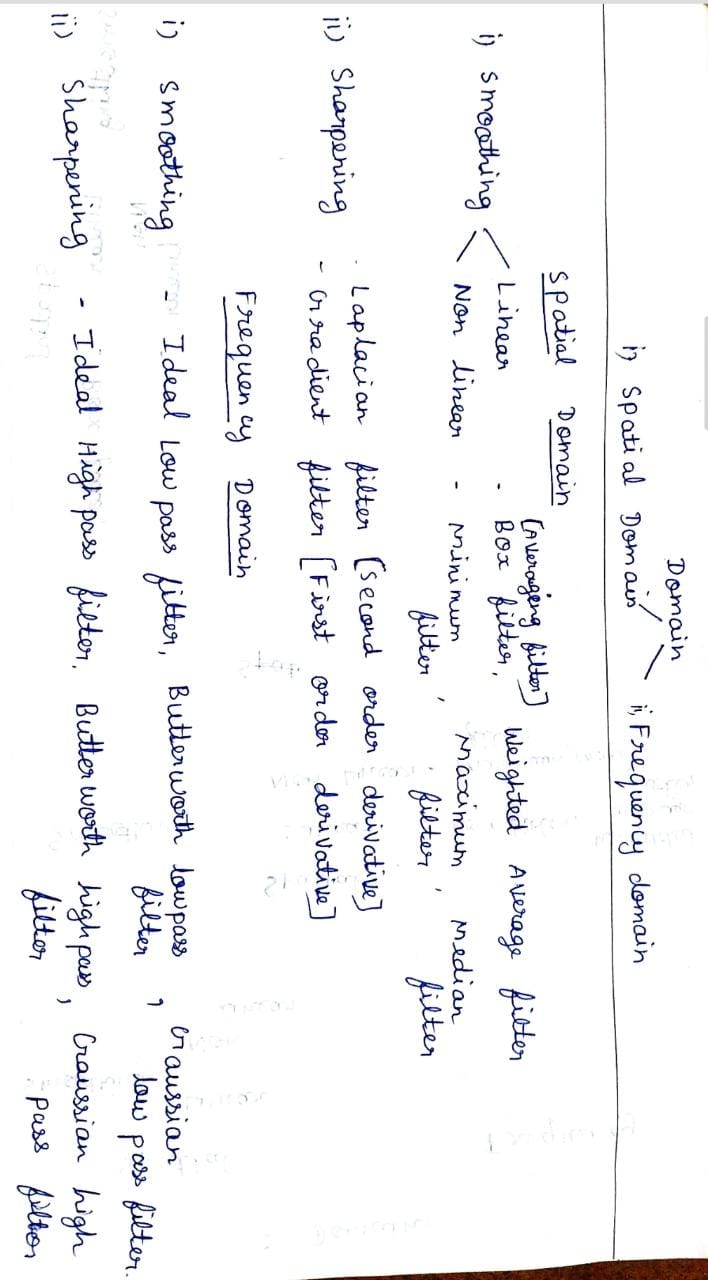 Domain
i) Spatial Domain ii, Frequency domain
Spatial Domain
[Averaging filter]
i) Smoothing Linear - Box filter, Weighted Average filter
Non linear - Minimum filter, Maximum filter, Median filter
ii) Sharpening - Laplacian filter [Second order derivative]
- Gradient filter [First order derivative]
Frequency Domain
i) Smoothing - Ideal Low pass filter, Butterworth lowpass filter, Gaussian low pass filter.
ii) Sharpening - Ideal High pass filter, Butterworth high pass filter, Gaussian high pass filter